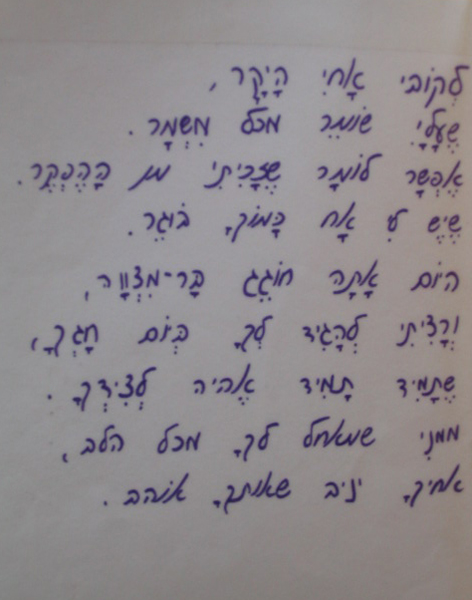 לְקוֹבִּי אָחִי הַיָּקָר,
שֶׁעָלַי שׁוֹמֵר מכל מִשְׁמָר.
אֶפְשָׁר לוֹמַר שֶׁזָּכִיתִי מן הַהֶפְקֵר.
שֶׁיֵּשׁ לִי אָח כָּמוֹךָ בּוֹגֵר.
היוֹם אַתָּה חוֹגֵג בַּר-מִצְוָוה,
וְרָצִיתִי לְהַגִּיד לְךָ בְּיוֹם חַגְּךָ,
שֶׁתָּמִיד תָּמִיד אֶהיה לְצִידְךָ.
ממנִי שמאחל לךָ מכל הלב,
אחיךָ יניב שאותךָ אוהב.